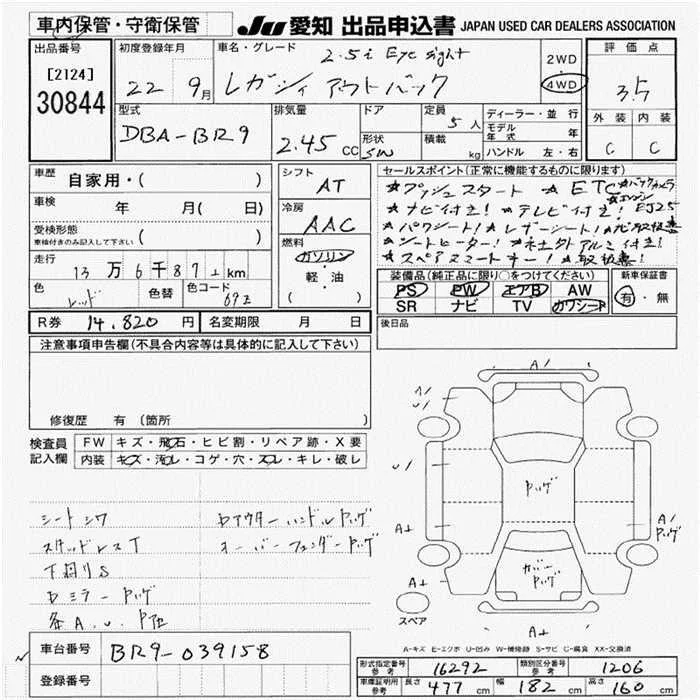 車内保管・守衛保管
JU 愛知 出品申込書 JAPAN USED CAR DEALERS ASSOCIATION
出品番号
[2124]
30844
初度登録年月
22 9月
車名・グレード
2.5i Eye sight
レガシィ アウトバック
2WD
・
4WD
評価点
3.5
外装 内装
C C
型式
DBA-BR9
排気量
2.45 cc
ドア
形状
SW
定員
5人
積載
kg
ディーラー・並行
モデル年式 年
ハンドル 左・右
車歴
自家用・( )
車検
年 月( 日)
受検形態
車検付きのみ記入して下さい ( )
走行
13万6千87 km
色
レッド
色替
色コード
69Z
シフト
AT
冷房
AAC
燃料
ガソリン
軽・油
( )
セールスポイント(正常に機能するものに限ります)
★プッシュスタート ★ETC ★バックカメラ
★ナビ付き! ★テレビ付き! ★エンジン EJ25
★パワーシート! ★レザーシート! ★ナビ取説書
★シートヒーター! ★社外アルミ付き!
★スペアスマートキー! ★取扱書!
装備品(純正品に限り○をつけてください)
PS PW エアB AW
SR ナビ TV カワシート
新車保証書
有・無
R券 14,820円
名変期限 月 日
後日品
注意事項申告欄(不具合内容等は具体的に記入して下さい)
修復歴 有 (箇所 )
検査員記入欄
FW キズ・飛石・ヒビ割・リペア跡・X要
内装 キズ・汚レ・コゲ・穴・スレ・キレ・破レ
シートシワ
スタッドレスT
下廻りS
ロアウターハンドルハゲ
オーバーフェンダーハゲ
A/
A/
U/
U/
A+
A+
A/
ハゲ
ハゲ
カバーハゲ
A+
スペア
A-キズ E-エクボ U-凹み W-補修跡 S-サビ C-腐食 XX-交換済
車台番号
BR9-039158
登録番号
形式指定番号 参考
16292
類別区分番号 参考
1206
車庫証明用 参考
長さ 477 cm 幅 182 cm 高さ 160 cm